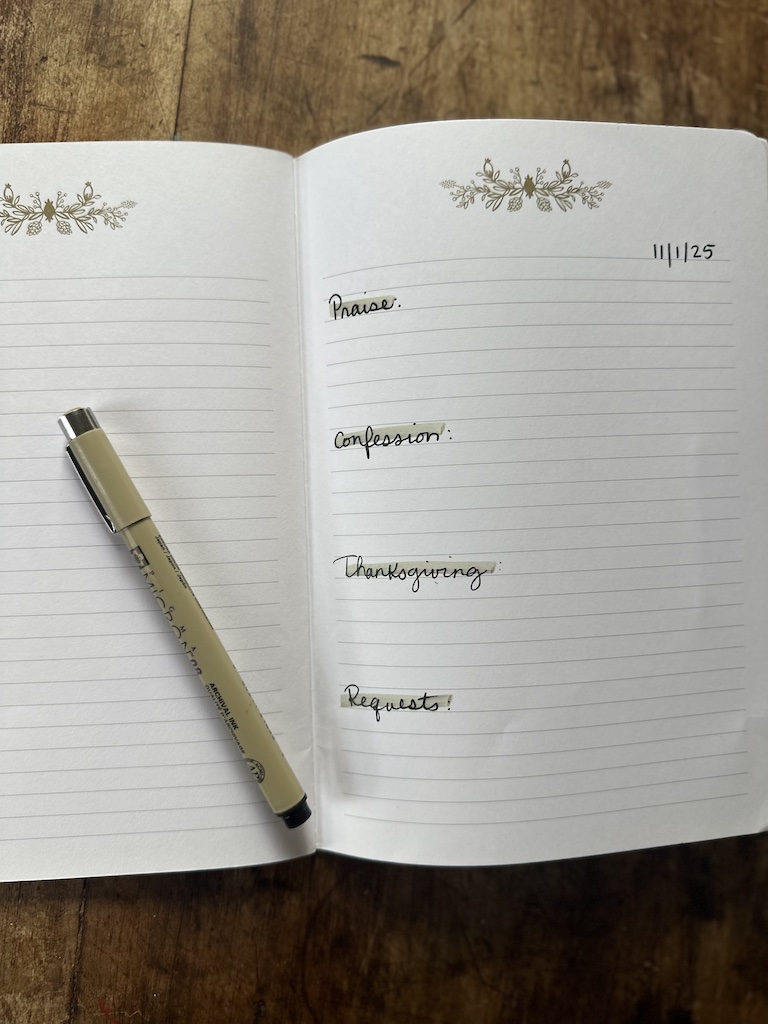 11/1/25
Praise:
Confession:
Thanksgiving:
Requests:
MICRON
ARCHIVAL INK